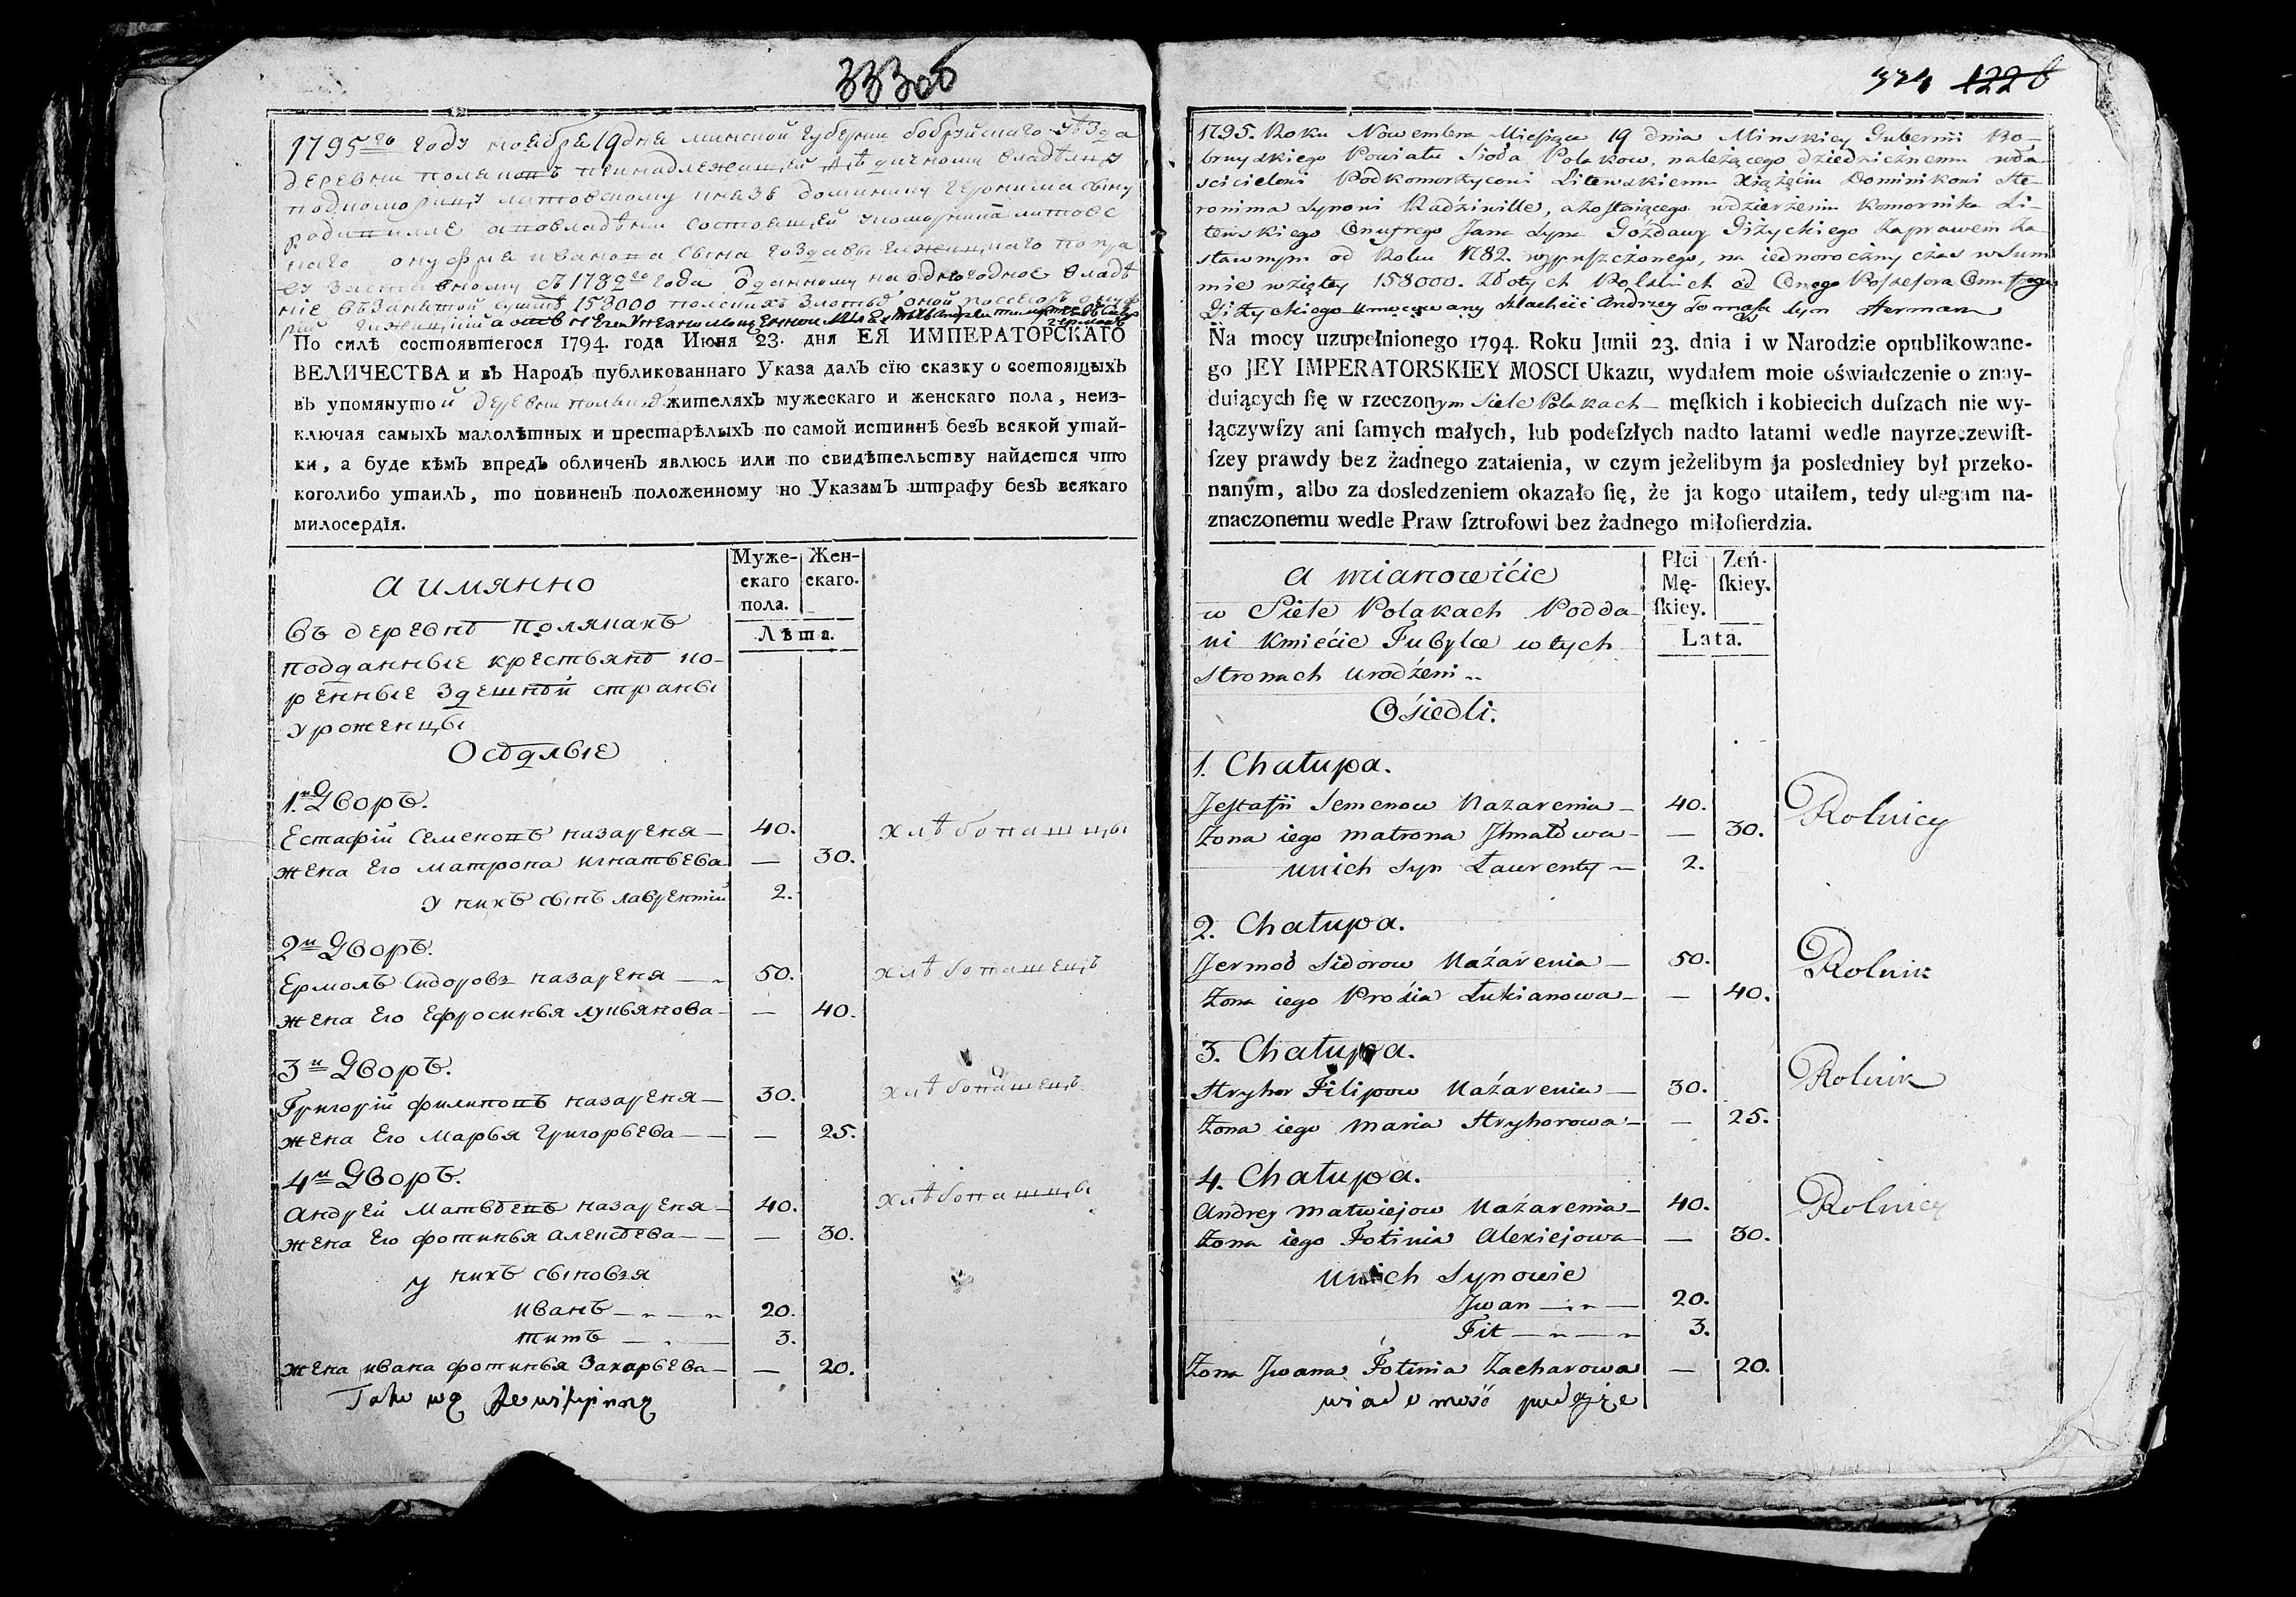 333об
1795го году ноября 19 дня минской губернии бобруйскаго уѣзда
деревни поляковъ принадлежащей дѣдичному владѣлцу
подкоморицу литовскому князю доминику геронима сыну
родивилле а во владѣнии состоящей у коморника литовс
каго онуфрия иванова сына гоздавы гижицкаго по пра
ву заставному съ 1782го года данному на одногодное владѣ
ние въ занятой суммѣ 158000 полскихъ злотыхъ оной
По силѣ состоявшегося 1794. года Июня 23. дня ЕЯ ИМПЕРАТОРСКАГО
ВЕЛИЧЕСТВА и въ Народъ публикованнаго Указа далъ сїю сказку о состоящыхъ
въ упомянутой деревни жителяхъ мужескаго и женскаго пола, неиз-
ключая самыхъ малолѣтныхъ и престарѣлыхъ по самой истиннѣ безъ всякой утай-
ки, а буде кѣмъ впредъ обличенъ явлюсь или по свидѣтельству найдется что
коголибо утаилъ, то повиненъ положенному по Указамъ штрафу безъ всякаго
милосердїя.
а имянно
Муже- Жен-
скаго скаго.
пола.
Лѣта.
въ деревнѣ полякахъ
подданные крестьянѣ ко-
ренные здешнѣй страны
уроженцы
Осѣдлые
1й Дворъ.
Естафій Семеновъ назареня — 40. хлѣбопашцы
жена Его матрона игнатьева — 30.
у нихъ сынъ лаврентій 2.
2й Дворъ.
Ермолъ Сидоровъ назареня — 50. хлѣбопашецъ
жена Его Ефросинья лукьянова — 40.
3й Дворъ.
Григорій филиповъ назареня — 30. хлѣбопашецъ
жена Его Марья Григорьева — — 25.
4й Дворъ.
Андрей Матвѣевъ назареня — 40. хлѣбопашцы
жена Его фотинья алексѣева — — 30.
у нихъ сыновья
иванъ — 20.
титъ — 3.
жена ивана фотинья Захарьева — — 20.
334 122 6
1795. Roku Nowembra Miesiąca 19 dnia Minskiey Gubernii Bo-
bruyskiego Powiatu Sioła Polakow, należącego dziedzicznemu wła-
scicielowi Podkomorzycowi Litewskiemu Xiążęciu Dominikowi He-
ronima synowi Radziwille, a zostaiącego w dzierżeniu Komornika Li-
tewskiego Onufrego Jana syna Gozdawy Giżyckiego za prawem za-
stawnym od Roku 1782. wypuszczonego, na iednoroczny czas w Sum-
mie wziętey 158000. Złotych Polskich od Onego Possesora Onufrego
Giżyckiego umocowany Szlachcic Andrzey Tomasza syn Herman
Na mocy uzupełnionego 1794. Roku Junii 23. dnia i w Narodzie opublikowane-
go JEY IMPERATORSKIEY MOSCI Ukazu, wydałem moie oświadczenie o znay-
duiących ſię w rzeczonym Siele Polakach męſkich i kobiecich duſzach nie wy-
łączywſzy ani ſamych małych, lub podeſzłych nadto latami wedle nayrzeczewiſt-
ſzey prawdy bez żadnego zataienia, w czym jeżelibym ja posledniey był przeko-
nanym, albo za dosledzeniem okazało ſię, że ja kogo utaiłem, tedy ulegam na-
znaczonemu wedle Praw ſztrofowi bez żadnego miłoſierdzia.
a mianowićie
Płci Żeń-
Mę- ſkiey.
ſkiey.
Lata.
w Siele Polakach Podda
ni Kmiećie Tubylce w tych
stronach urodźeni
Ośiedli.
1. Chałupa.
Jestafii Semenow Nazarenia — 40. Rolnicy
Żona iego matrona Ihnatowa — — 30.
u nich syn Laurenty — 2.
2. Chałupa.
Jermoł Sidorow Nazarenia — 50. Rolnik
Żona iego Prośia Łukianowa — — 40.
3. Chałupa.
Hryhor Filipow Nazarenia — 30. Rolnik
Żona iego Maria Hryhorowa — — 25.
4. Chałupa.
Andrey Matwiejow Nazarenia — 40. Rolnicy
Żona iego Fotinia Alexiejowa — — 30.
u nich Synowie
Jwan — 20.
Tit — 3.
Żona Jwana Fotinia Zacharowa — 20.
Takową Rewizyiną
wiadomość podaię